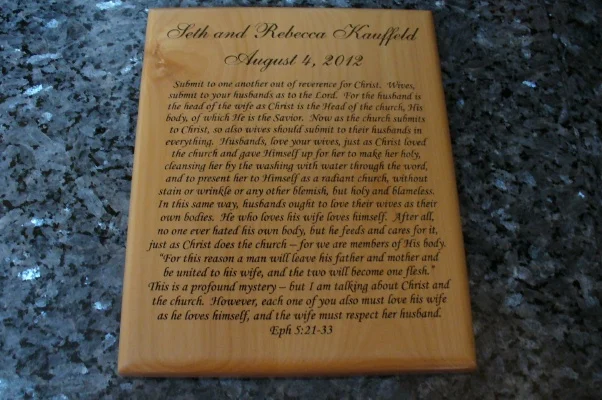 Seth and Rebecca Kauffeld
August 4, 2012
Submit to one another out of reverence for Christ. Wives,
submit to your husbands as to the Lord. For the husband is
the head of the wife as Christ is the Head of the church, His
body, of which He is the Savior. Now as the church submits
to Christ, so also wives should submit to their husbands in
everything. Husbands, love your wives, just as Christ loved
the church and gave Himself up for her to make her holy,
cleansing her by the washing with water through the word,
and to present her to Himself as a radiant church, without
stain or wrinkle or any other blemish, but holy and blameless.
In this same way, husbands ought to love their wives as their
own bodies. He who loves his wife loves himself. After all,
no one ever hated his own body, but he feeds and cares for it,
just as Christ does the church – for we are members of His body.
"For this reason a man will leave his father and mother and
be united to his wife, and the two will become one flesh."
This is a profound mystery – but I am talking about Christ and
the church. However, each one of you also must love his wife
as he loves himself, and the wife must respect her husband.
Eph 5:21-33